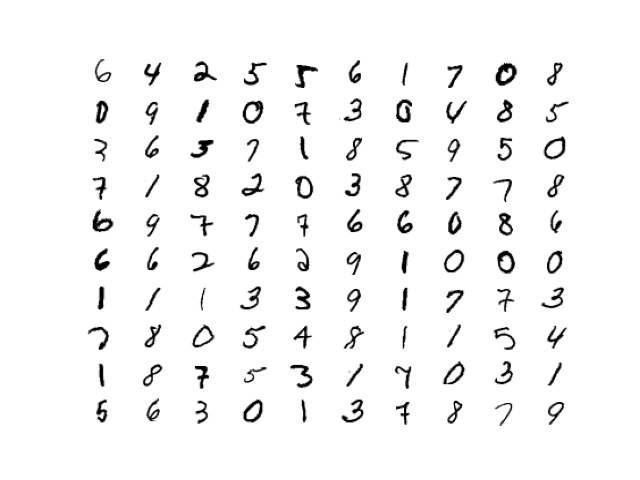 6 4 2 5 5 6 1 7 0 8
0 9 1 0 7 3 0 4 8 5
3 6 3 7 1 8 5 9 5 0
7 1 8 2 0 3 8 7 7 8
6 9 7 7 7 6 6 0 8 6
6 6 2 6 2 9 1 0 0 0
1 1 1 3 3 9 1 7 7 3
7 8 0 5 4 8 1 1 5 4
1 8 7 5 3 1 7 0 3 1
5 6 3 0 1 3 7 8 7 9